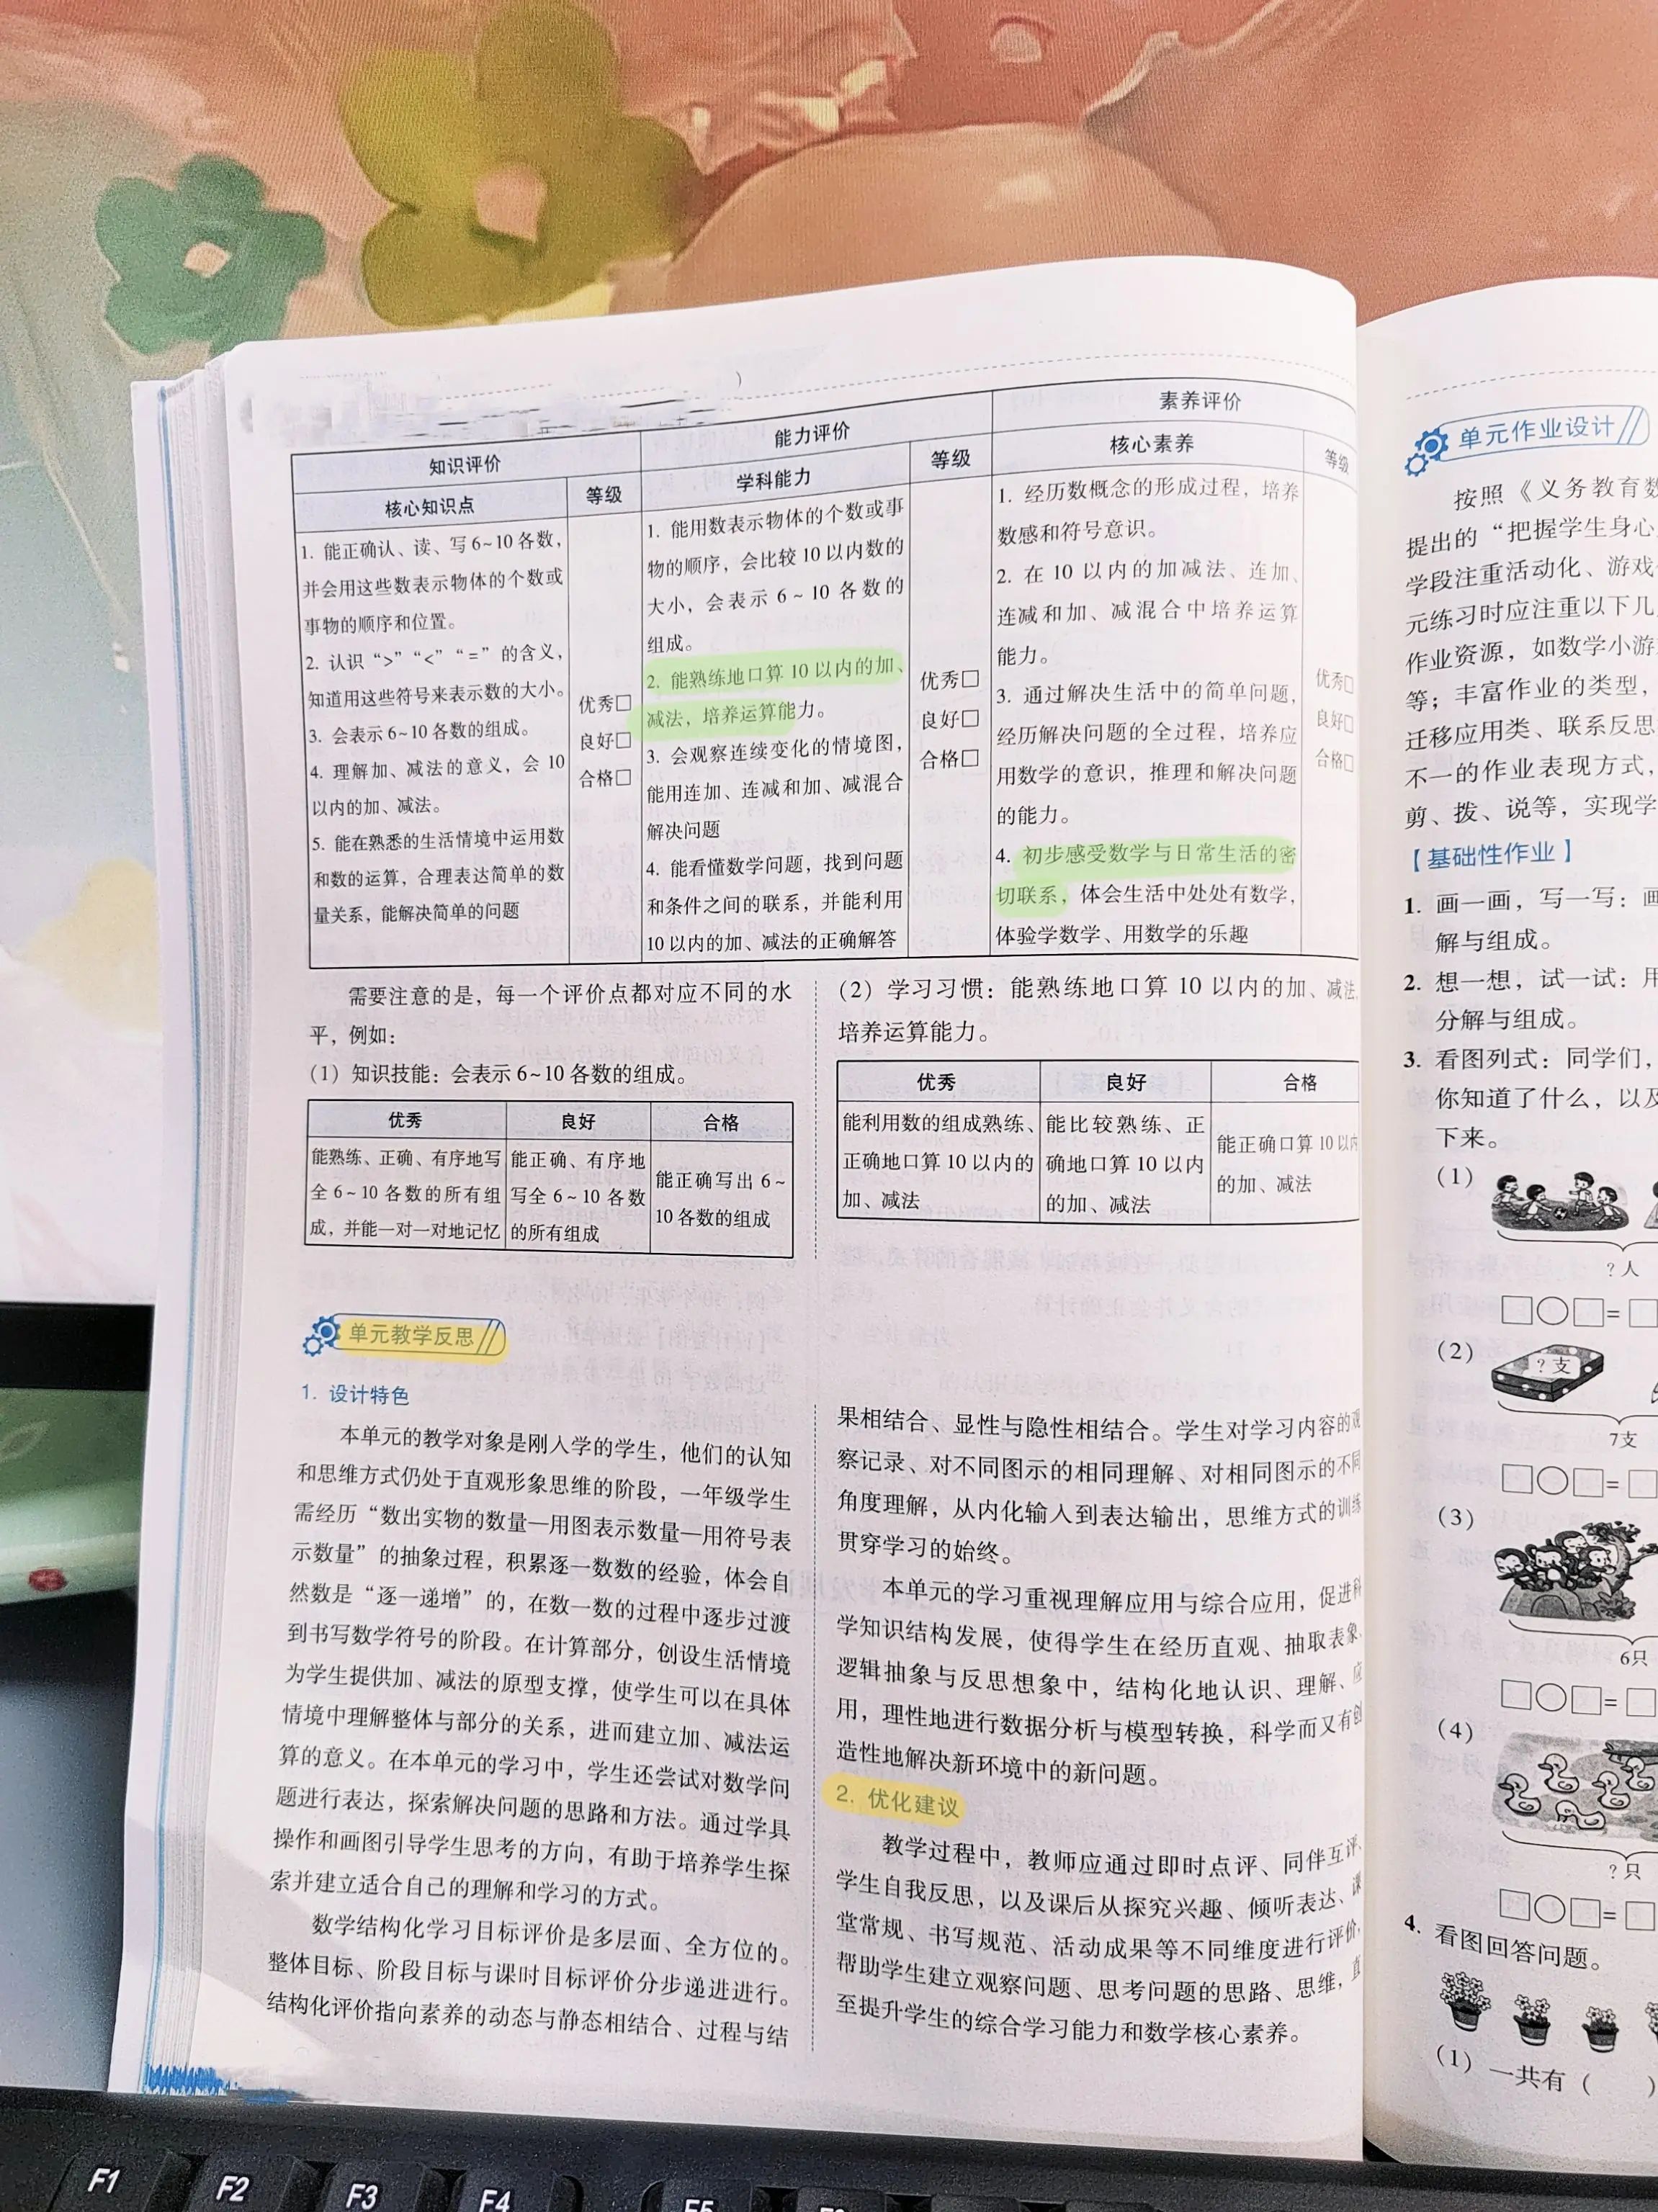 知识评价
能力评价
素养评价
核心知识点
等级
学科能力
等级
核心素养
等级
1. 能正确认、读、写6~10各数，
并会用这些数表示物体的个数或
事物的顺序和位置。
2. 认识“>”“<”“=”的含义，
知道用这些符号来表示数的大小。
3. 会表示6~10各数的组成。
4. 理解加、减法的意义，会10
以内的加、减法。
5. 能在熟悉的生活情境中运用数
和数的运算，合理表达简单的数
量关系，能解决简单的问题
优秀□
良好□
合格□
1. 能用数表示物体的个数或事
物的顺序，会比较10以内数的
大小，会表示6~10各数的
组成。
2. 能熟练地口算10以内的加、
减法，培养运算能力。
3. 会观察连续变化的情境图，
能用连加、连减和加、减混合
解决问题
4. 能看懂数学问题，找到问题
和条件之间的联系，并能利用
10以内的加、减法的正确解答
优秀□
良好□
合格□
1. 经历数概念的形成过程，培养
数感和符号意识。
2. 在10以内的加减法、连加、
连减和加、减混合中培养运算
能力。
3. 通过解决生活中的简单问题，
经历解决问题的全过程，培养应
用数学的意识，推理和解决问题
的能力。
4. 初步感受数学与日常生活的密
切联系，体会生活中处处有数学，
体验学数学、用数学的乐趣
优秀□
良好□
合格□
需要注意的是，每一个评价点都对应不同的水
平，例如：
（1）知识技能：会表示6~10各数的组成。
优秀
良好
合格
能熟练、正确、有序地写
全6~10各数的所有组
成，并能一对一对地记忆
能正确、有序地
写全6~10各数
的所有组成
能正确写出6~
10各数的组成
（2）学习习惯：能熟练地口算10以内的加、减法，
培养运算能力。
优秀
良好
合格
能利用数的组成熟练、
正确地口算10以内的
加、减法
能比较熟练、正
确地口算10以内
的加、减法
能正确口算10以内
的加、减法
单元教学反思
1. 设计特色
本单元的教学对象是刚入学的学生，他们的认知
和思维方式仍处于直观形象思维的阶段，一年级学生
需经历“数出实物的数量—用图表示数量—用符号表
示数量”的抽象过程，积累逐一数数的经验，体会自
然数是“逐一递增”的，在数一数的过程中逐步过渡
到书写数学符号的阶段。在计算部分，创设生活情境
为学生提供加、减法的原型支撑，使学生可以在具体
情境中理解整体与部分的关系，进而建立加、减法运
算的意义。在本单元的学习中，学生还尝试对数学问
题进行表达，探索解决问题的思路和方法。通过学具
操作和画图引导学生思考的方向，有助于培养学生探
索并建立适合自己的理解和学习的方式。
数学结构化学习目标评价是多层面、全方位的。
整体目标、阶段目标与课时目标评价分步递进进行。
结构化评价指向素养的动态与静态相结合、过程与结
果相结合、显性与隐性相结合。学生对学习内容的观
察记录、对不同图示的相同理解、对相同图示的不同
角度理解，从内化输入到表达输出，思维方式的训练
贯穿学习的始终。
本单元的学习重视理解应用与综合应用，促进科
学知识结构发展，使得学生在经历直观、抽取表象、
逻辑抽象与反思想象中，结构化地认识、理解、应
用，理性地进行数据分析与模型转换，科学而又有创
造性地解决新环境中的新问题。
2. 优化建议
教学过程中，教师应通过即时点评、同伴互评、
学生自我反思，以及课后从探究兴趣、倾听表达、课
堂常规、书写规范、活动成果等不同维度进行评价，
帮助学生建立观察问题、思考问题的思路、思维，直
至提升学生的综合学习能力和数学核心素养。
单元作业设计
按照《义务教育数
提出的“把握学生身心
学段注重活动化、游戏
元练习时应注重以下几
作业资源，如数学小游
等；丰富作业的类型，
迁移应用类、联系反思
不一的作业表现方式，
剪、拨、说等，实现学
【基础性作业】
1. 画一画，写一写：画
解与组成。
2. 想一想，试一试：用
分解与组成。
3. 看图列式：同学们，
你知道了什么，以及
下来。
（1）
?人
□○□=□
（2）
?支
7支
□○□=□
（3）
6只
□○□=□
（4）
?只
□○□=□
4. 看图回答问题。
（1）一共有（ ）
F1
F2
F3
F4
F5